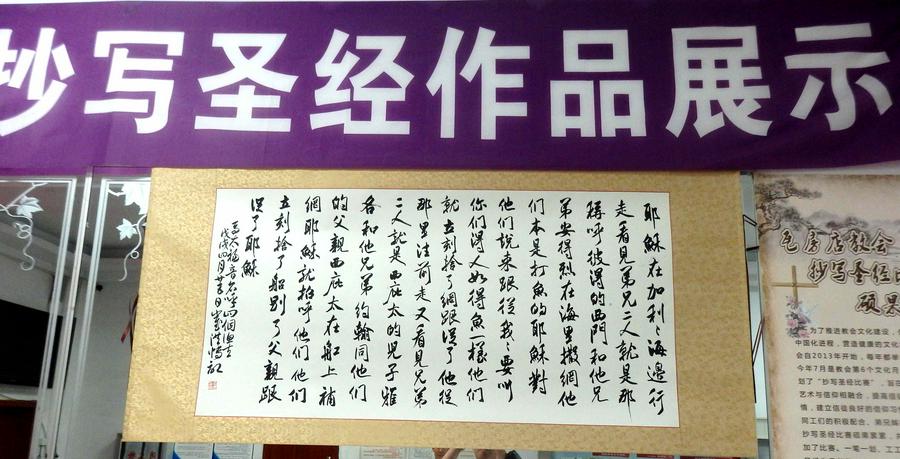 抄写圣经作品展示
耶稣在加利利海邊行
走看見弟兄二人就是那
稱呼彼得的西門和他兄
弟安得烈在海里撒網他
们本是打魚的耶穌對
他们説来跟從我我要叫
你们得人如得魚一樣他们
就立刻捨了網跟從了他從
那里往前走又看見兄弟
二人就是西庇太的児子雅
各和他兄弟约翰同他们
的父親西庇太在船上補
網耶穌就招呼他们他们
立刻捨了船别了父親跟
從了耶穌
馬太福音召呼四個漁夫
戊戌四月
瓦房店教会
抄写圣经
硕果
为了推进教会文化建设
中国化进程，营造健康的文化
会自2013年开始，每年都举
今年7月是教会第6个文化月
划了“抄写圣经比赛”，旨在
艺术与信仰相融合，提高信徒
情，建立信徒良好的信仰习惯
同工们的积极配合，弟兄姊
抄写圣经比赛硕果累累，共
加了比赛，一笔一划，工工